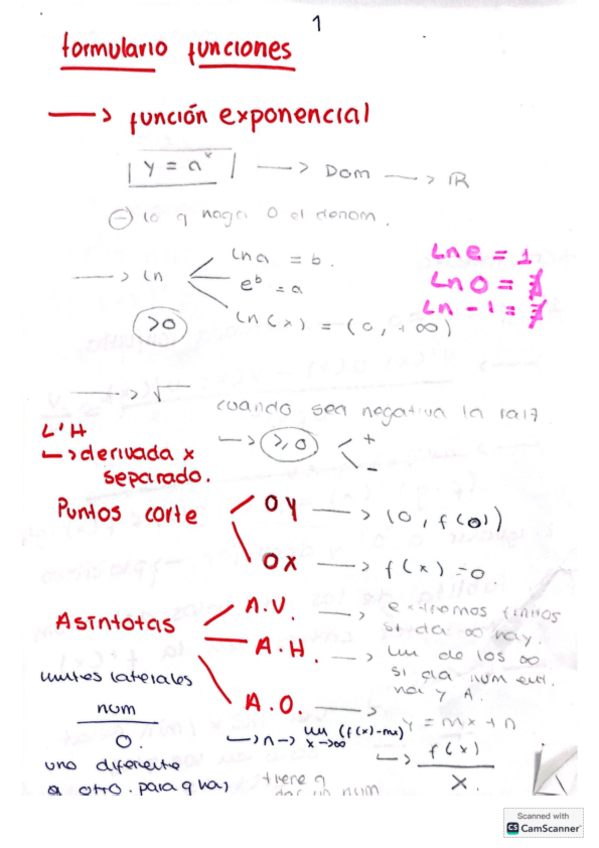 1
formulario funciones
→ función exponencial
y = aˣ → Dom → ℝ
⊖ lo q haga 0 el denom.
→ Ln
Lna = b.
eᵇ = a
Ln(x) = (0, +∞)
>0
Ln e = 1
Ln 0 = ∄
Ln -1 = ∄
→ √
cuando sea negativa la raiz
→ ≥0 < + -
L'H
↳ derivada x
separado.
Puntos corte
OY → (0, f(0))
OX → f(x) = 0.
Asintotas
A.V. → extremos finitos
si da ∞ hay.
A.H. → lim de los ∞
si da num
hay A.
A.O. → y = mx + n
↳ n → lim x→∞ (f(x)-mx)
↳ f(x)
x.
limites laterales
num
0.
uno diferente
a otro. para q hay
tiene q
dar un num
Scanned with
CS CamScanner